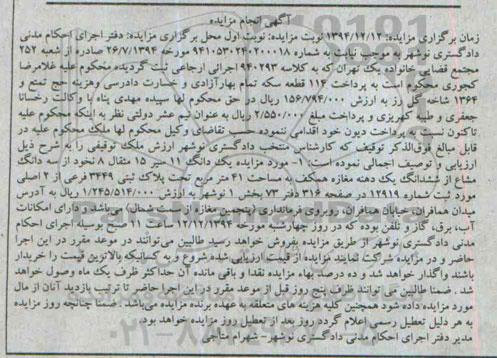 آگهی انجام مزایده
زمان برگزاری مزایده: ۱۳۹۴/۱۲/۱۲ نوبت مزایده: نوبت اول محل برگزاری مزایده: دفتر اجرای احکام مدنی
دادگستری نوشهر به موجب نیابت به شماره ۹۴۱۰۵۳۰۲۴۰۲۰۰۰۱۸ مورخه ۲۶/۷/۱۳۹۴ صادره از شعبه ۲۵۲
مجتمع قضایی خانواده یک تهران که به کلاسه ۹۴۰۲۹۳ اجرائی ارجاعی ثبت گردیده محکوم علیه غلامرضا
کجوری محکوم است به پرداخت ۱۱۴ قطعه سکه تمام بهارآزادی و خسارت دادرسی وهزینه حج تمتع و
۱۳۶۴ شاخه گل رز به ارزش ۱۵۶/۷۹۴/۰۰۰ ریال در حق محکوم لها سپیده مهدی پناه با وکالت رخسانا
جعفری و طیبه کهریزی و پرداخت مبلغ ۲/۵۵۰/۰۰۰ ریال به عنوان نیم عشر دولتی نظر به اینکه محکوم علیه
تاکنون نسبت به پرداخت دیون خود اقدامی ننموده حسب تقاضای وکیل محکوم لها ملک محکوم علیه در
قابل مبالغ فوق‌الذکر توقیف که کارشناس منتخب دادگستری نوشهر ارزش ملک توقیفی را به شرح ذیل
ارزیابی و توصیف اجمالی نموده است: ۱- مورد مزایده یک دانگ ۱۱ سیر ۱۵ مثقال ۸ نخود از سه دانگ
مشاع از ششدانگ یک دهنه مغازه همکف به مساحت ۴۱ متر مربع تحت پلاک ثبتی ۳۴۴۹ فرعی از ۲ اصلی
مورد ثبت شماره ۱۲۹۱۹ در صفحه ۳۱۶ دفتر ۷۳ بخش ۱ نوشهر به ارزش ۱/۲۴۵/۵۱۴/۰۰۰ ریال به آدرس
میدان همافران، خیابان همافران، روبروی فرمانداری (پنجمین مغازه از سمت شمال) می‌باشد و دارای امکانات
آب، برق، گاز و تلفن بوده که در روز چهارشنبه مورخه ۱۲/۱۲/۱۳۹۴ ساعت ۱۱ صبح بوسیله اجرای احکام
مدنی دادگستری نوشهر از طریق مزایده بفروش خواهد رسید طالبین می‌توانند در موعد مقرر در این اجرا
حاضر و در مزایده شرکت نمایند مزایده از قیمت ارزیابی شده شروع و به کسانیکه بالاترین قیمت را خریدار
باشند واگذار خواهد شد و ده درصد بهاء مزایده نقدا و باقی مانده آن حداکثر ظرف یک ماه وصول خواهد
شد. ضمنا طالبین می توانند ظرف پنج روز قبل از موعد مقرر در این اجرا حاضر تا ترتیب بازدید آنان از مال
مورد مزایده داده شود همچنین کلیه هزینه های متعلقه به عهده برنده مزایده می‌باشد. ضمنا چنانچه روز مزایده
به هر دلیل تعطیل رسمی اعلام گردد روز بعد از تعطیل روز مزایده خواهد بود.
مدیر دفتر اجرای احکام مدنی دادگستری نوشهر- شهرام متاجی